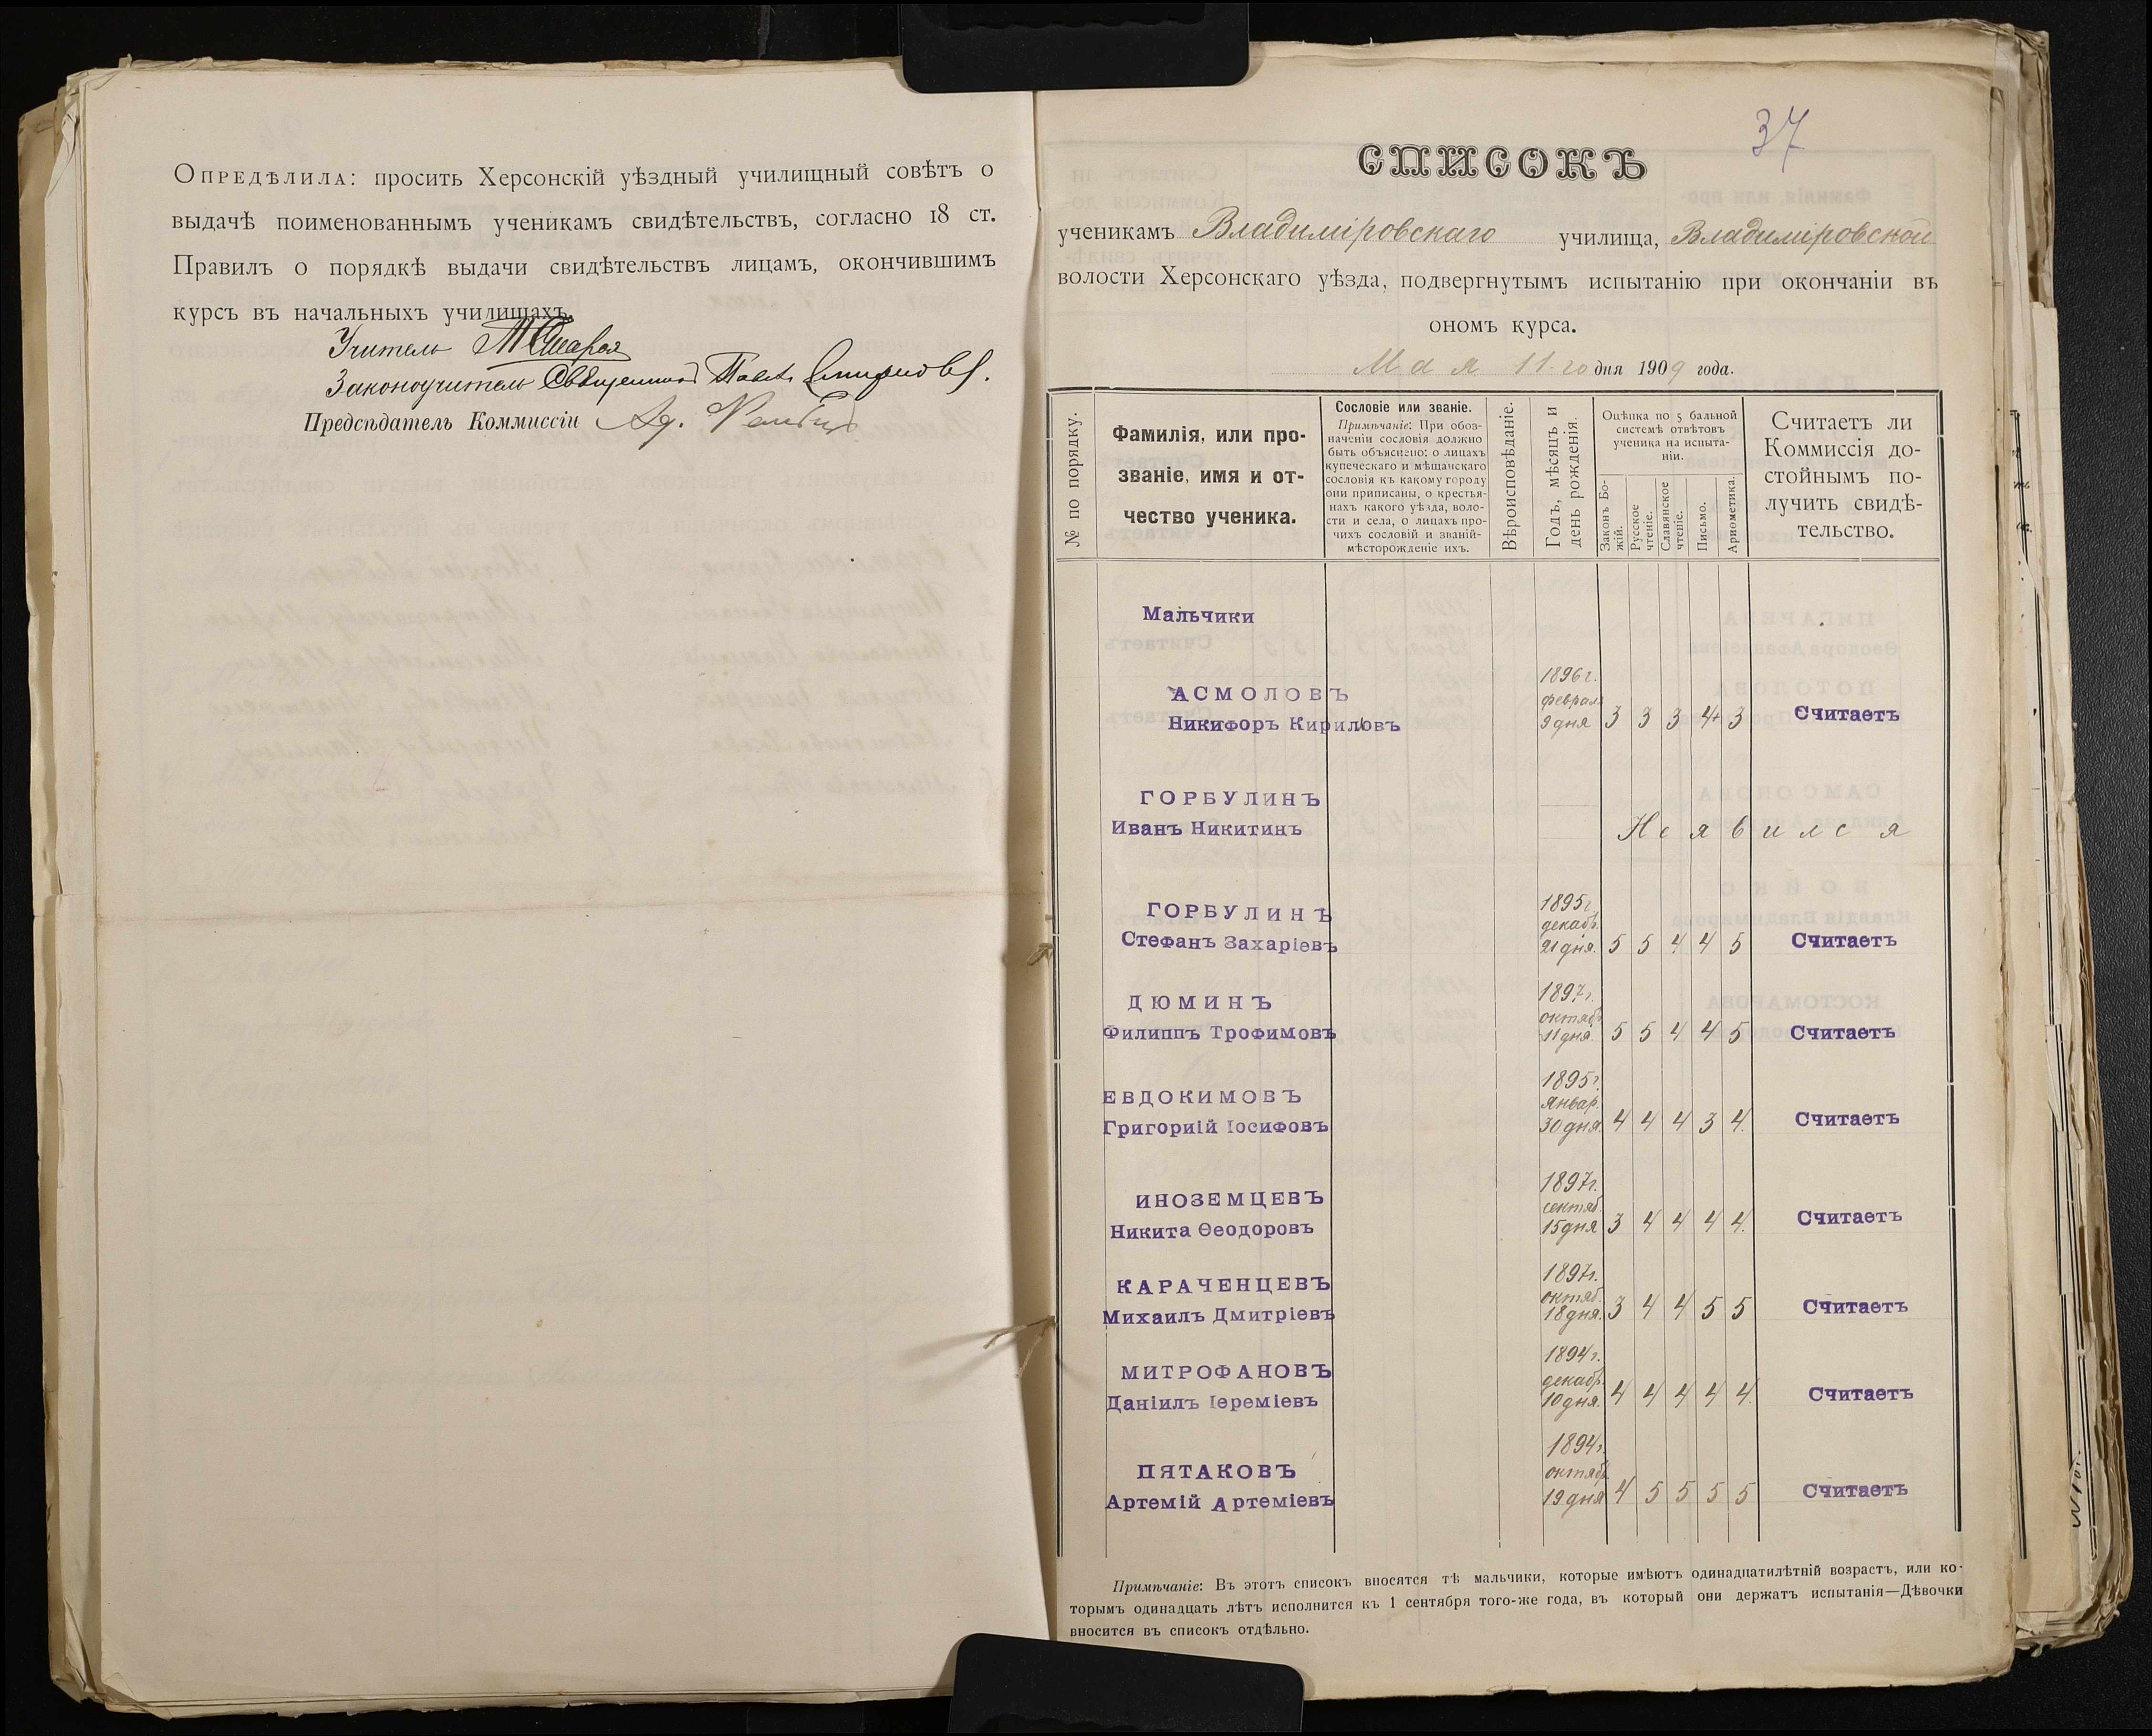 Опредѣлила: просить Херсонскій уѣздный училищный совѣтъ о
выдачѣ поименованнымъ ученикамъ свидѣтельствъ, согласно 18 ст.
Правилъ о порядкѣ выдачи свидѣтельствъ лицамъ, окончившимъ
курсъ въ начальныхъ училищахъ.
Учитель
Законоучитель Священник Павел Смирновъ.
Предсѣдатель Коммиссіи
37
СПИСОКЪ
ученикамъ Владиміровскаго училища, Владиміровской
волости Херсонскаго уѣзда, подвергнутымъ испытанію при окончаніи въ
ономъ курса.
Мая 11-го дня 1909 года.
№ по порядку.
Фамилія, или про-
званіе, имя и от-
чество ученика.
Сословіе или званіе.
Примѣчаніе: При обоз-
наченіи сословія должно
быть объяснено: о лицахъ
купеческаго и мѣщанскаго
сословія къ какому городу
они приписаны, о крестья-
нахъ какого уѣзда, воло-
сти и села, о лицахъ про-
чихъ сословій и званій-
мѣсторожденіе ихъ.
Вѣроисповѣданіе.
Годъ, мѣсяцъ и
день рожденія.
Оцѣнка по 5 бальной
системѣ отвѣтовъ
ученика на испыта-
ніи.
Законъ Бо-
жій.
Русское
чтеніе.
Славянское
чтеніе.
Письмо.
Ариѳметика.
Считаетъ ли
Коммиссія до-
стойнымъ по-
лучить свидѣ-
тельство.
Мальчики
АСМОЛОВЪ
Никифоръ Кириловъ
1896 г.
феврал.
9 дня 3 3 3 4+ 3 Считаетъ
ГОРБУЛИНЪ
Иванъ Никитинъ Не явился
ГОРБУЛИНЪ
Стефанъ Захаріевъ
1895 г.
декабр.
21 дня. 5 5 4 4 5 Считаетъ
ДЮМИНЪ
Филиппъ Трофимовъ
1897 г.
октяб.
11 дня. 5 5 4 4 5 Считаетъ
ЕВДОКИМОВЪ
Григориій Іосифовъ
1895 г.
январ.
30 дня. 4 4 4 3 4. Считаетъ
ИНОЗЕМЦЕВЪ
Никита Ѳеодоровъ
1897 г.
сентяб.
15 дня 3 4 4 4 4. Считаетъ
КАРАЧЕНЦЕВЪ
Михаилъ Дмитріевъ
1897 г.
октяб.
18 дня. 3 4 4 5 5 Считаетъ
МИТРОФАНОВЪ
Даніилъ Іереміевъ
1894 г.
декабр.
10 дня. 4 4 4 4 4. Считаетъ
ПЯТАКОВЪ
Артемій Артеміевъ
1894 г.
октяб.
19 дня 4 5 5 5 5 Считаетъ
Примѣчаніе: Въ этотъ списокъ вносятся тѣ мальчики, которые имѣютъ одинадцатилѣтній возрастъ, или ко-
торымъ одинадцать лѣтъ исполнится къ 1 сентября того-же года, въ который они держатъ испытанія—Дѣвочки
вносится въ списокъ отдѣльно.